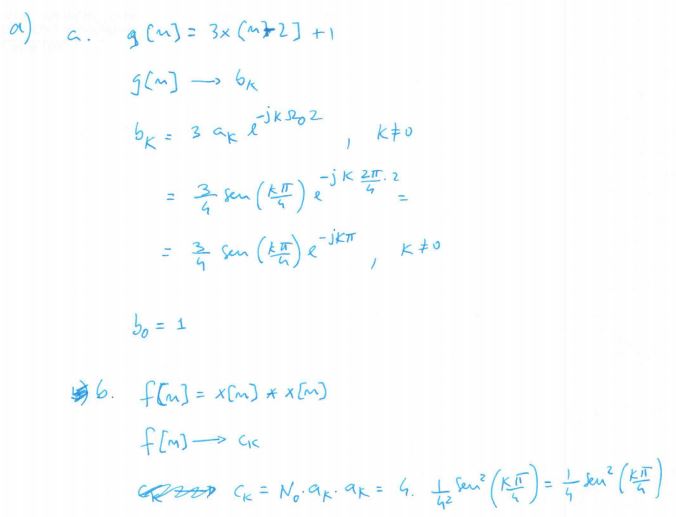 a) a. g[n] = 3x[n-2] + 1
g[n] → b_k
b_k = 3 a_k e^{-jkΩ_0 2} , k≠0
= 3/4 sen(kπ/4) e^{-jk 2π/4 · 2} =
= 3/4 sen(kπ/4) e^{-jkπ} , k≠0
b_0 = 1
b. f[n] = x[n] * x[n]
f[n] → c_k
c_k = N_0 · a_k · a_k = 4 · 1/4² sen²(kπ/4) = 1/4 sen²(kπ/4)